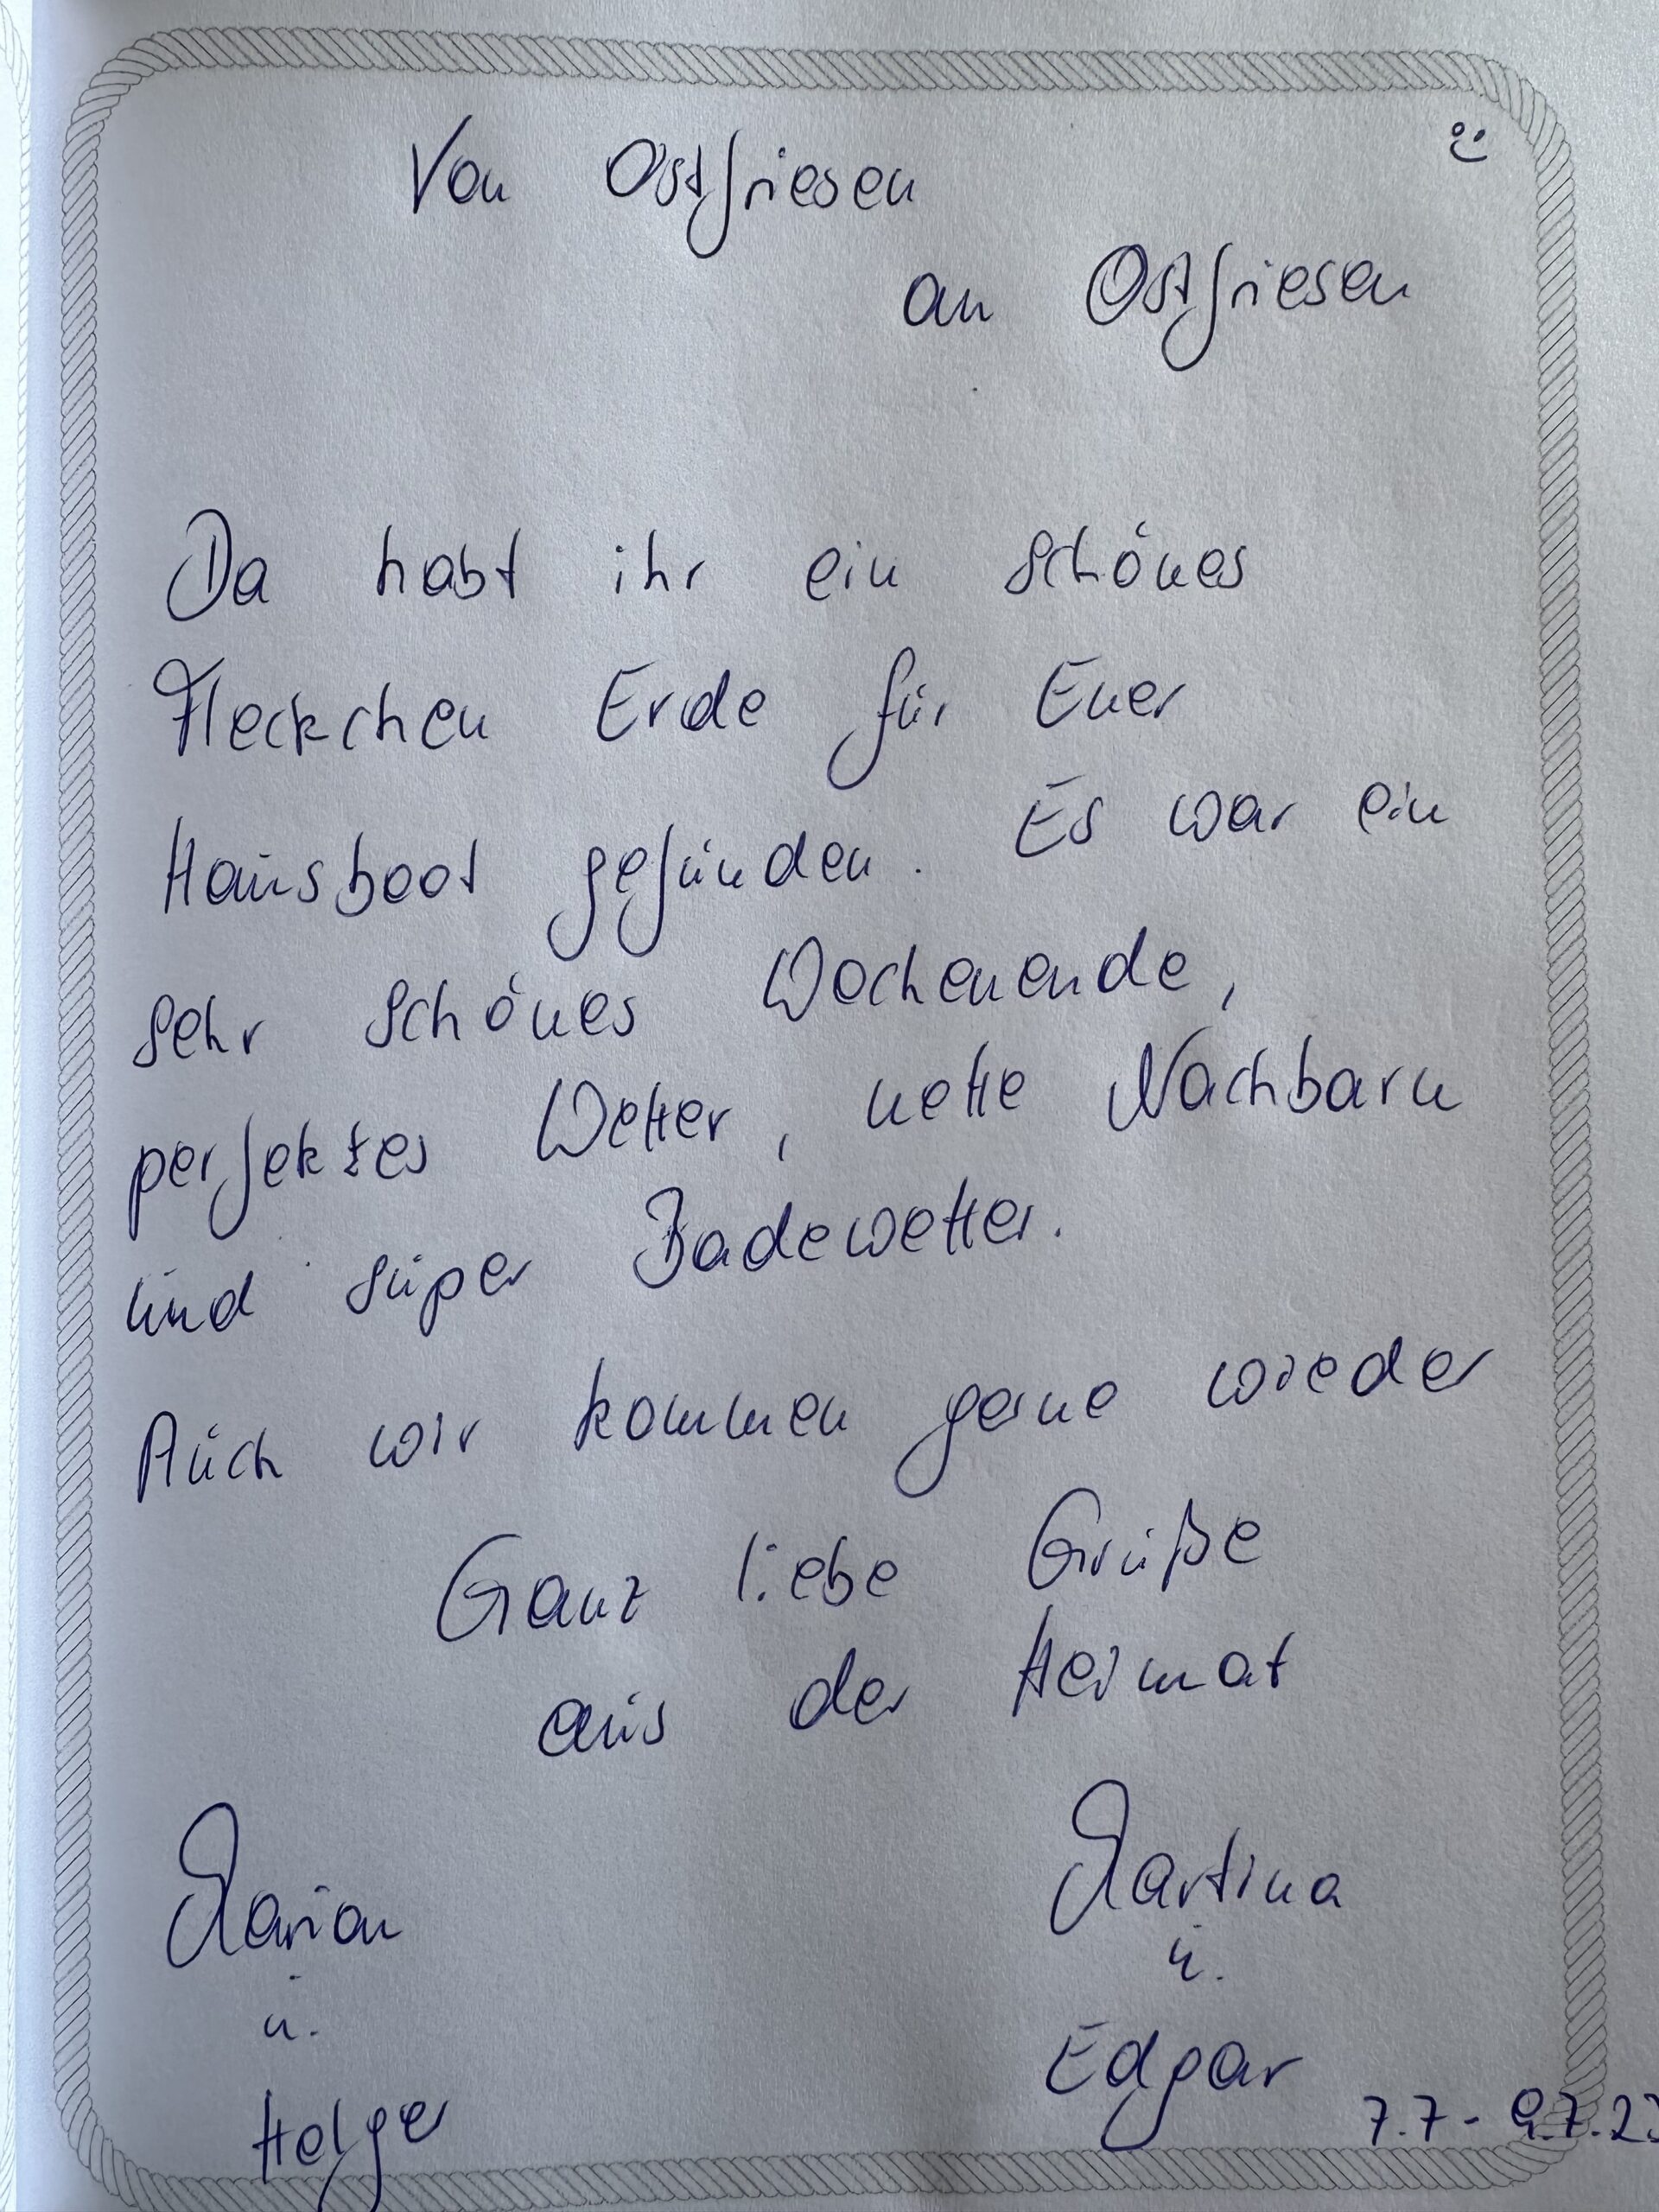 Von Ostfriesen
an Ostfriesen
Da habt ihr ein schönes
Fleckchen Erde für Euer
Hausboot gefunden. Es war ein
sehr schönes Wochenende,
perfektes Wetter, nette Nachbarn
und super Badewetter.
Auch wir kommen gerne wieder
Ganz liebe Grüße
aus der Heimat
Marion Martina
u. u.
Helger Edgar
7.7-9.7.23